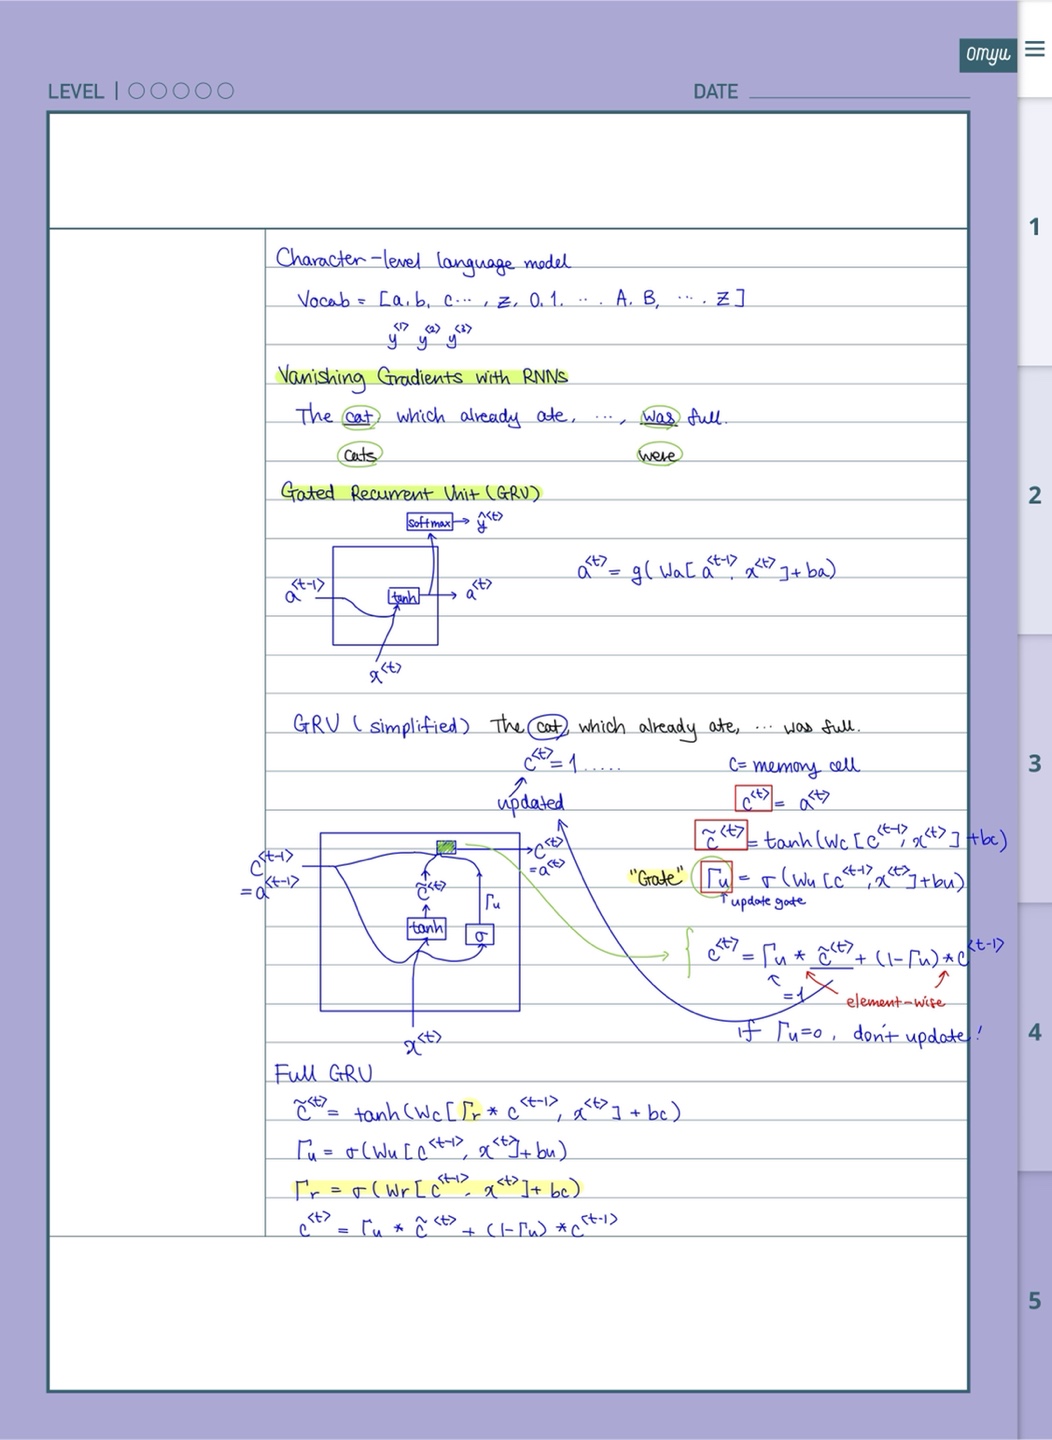 omyu
LEVEL | ○○○○○ DATE
Character-level language model
Vocab = [a, b, c ..., z, 0, 1, ... . A, B, ... . Z]
y^<1> y^<2> y^<3>
Vanishing Gradients with RNNs
The cat which already ate, ..., was full.
cats were
Gated Recurrent Unit (GRU)
softmax → ŷ^<t>
a^<t> = g(Wa[a^<t-1>, x^<t>] + ba)
a^<t-1> tanh → a^<t>
x^<t>
GRU (simplified) The cat, which already ate, ... was full.
c^<t> = 1 ..... C = memory cell
updated c^<t> = a^<t>
c̃^<t> = tanh(Wc[c^<t-1>, x^<t>] + bc)
c^<t-1> = a^<t-1>
c^<t> = a^<t>
"Gate" Γu = σ(Wu[c^<t-1>, x^<t>] + bu)
↑ update gate
c̃^<t> Γu
tanh σ
c^<t> = Γu * c̃^<t> + (1-Γu) * c^<t-1>
=1 element-wise
x^<t>
if Γu=0, don't update!
Full GRU
c̃^<t> = tanh(Wc[Γr * c^<t-1>, x^<t>] + bc)
Γu = σ(Wu[c^<t-1>, x^<t>] + bu)
Γr = σ(Wr[c^<t-1>, x^<t>] + bc)
c^<t> = Γu * c̃^<t> + (1-Γu) * c^<t-1>
1
2
3
4
5